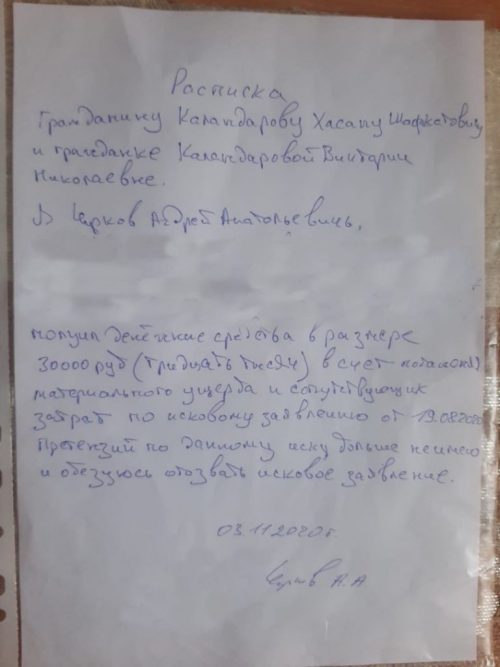 Расписка
Гражданину Каландарову Хасану Шафкатовичу
и гражданке Каландаровой Виктории
Николаевне.
Я Чирков Андрей Анатольевичь,
получил денежние средства в размере
30000 руб (тридцать тысяч) в счет погашения
материального ущерба и сопутствующих
затрат по исковому заявлению от 19.08.2020
Претензий по данному иску больше неимею
и обязуюсь отозвать исковое заявление.
03.11.2020г.
А.А